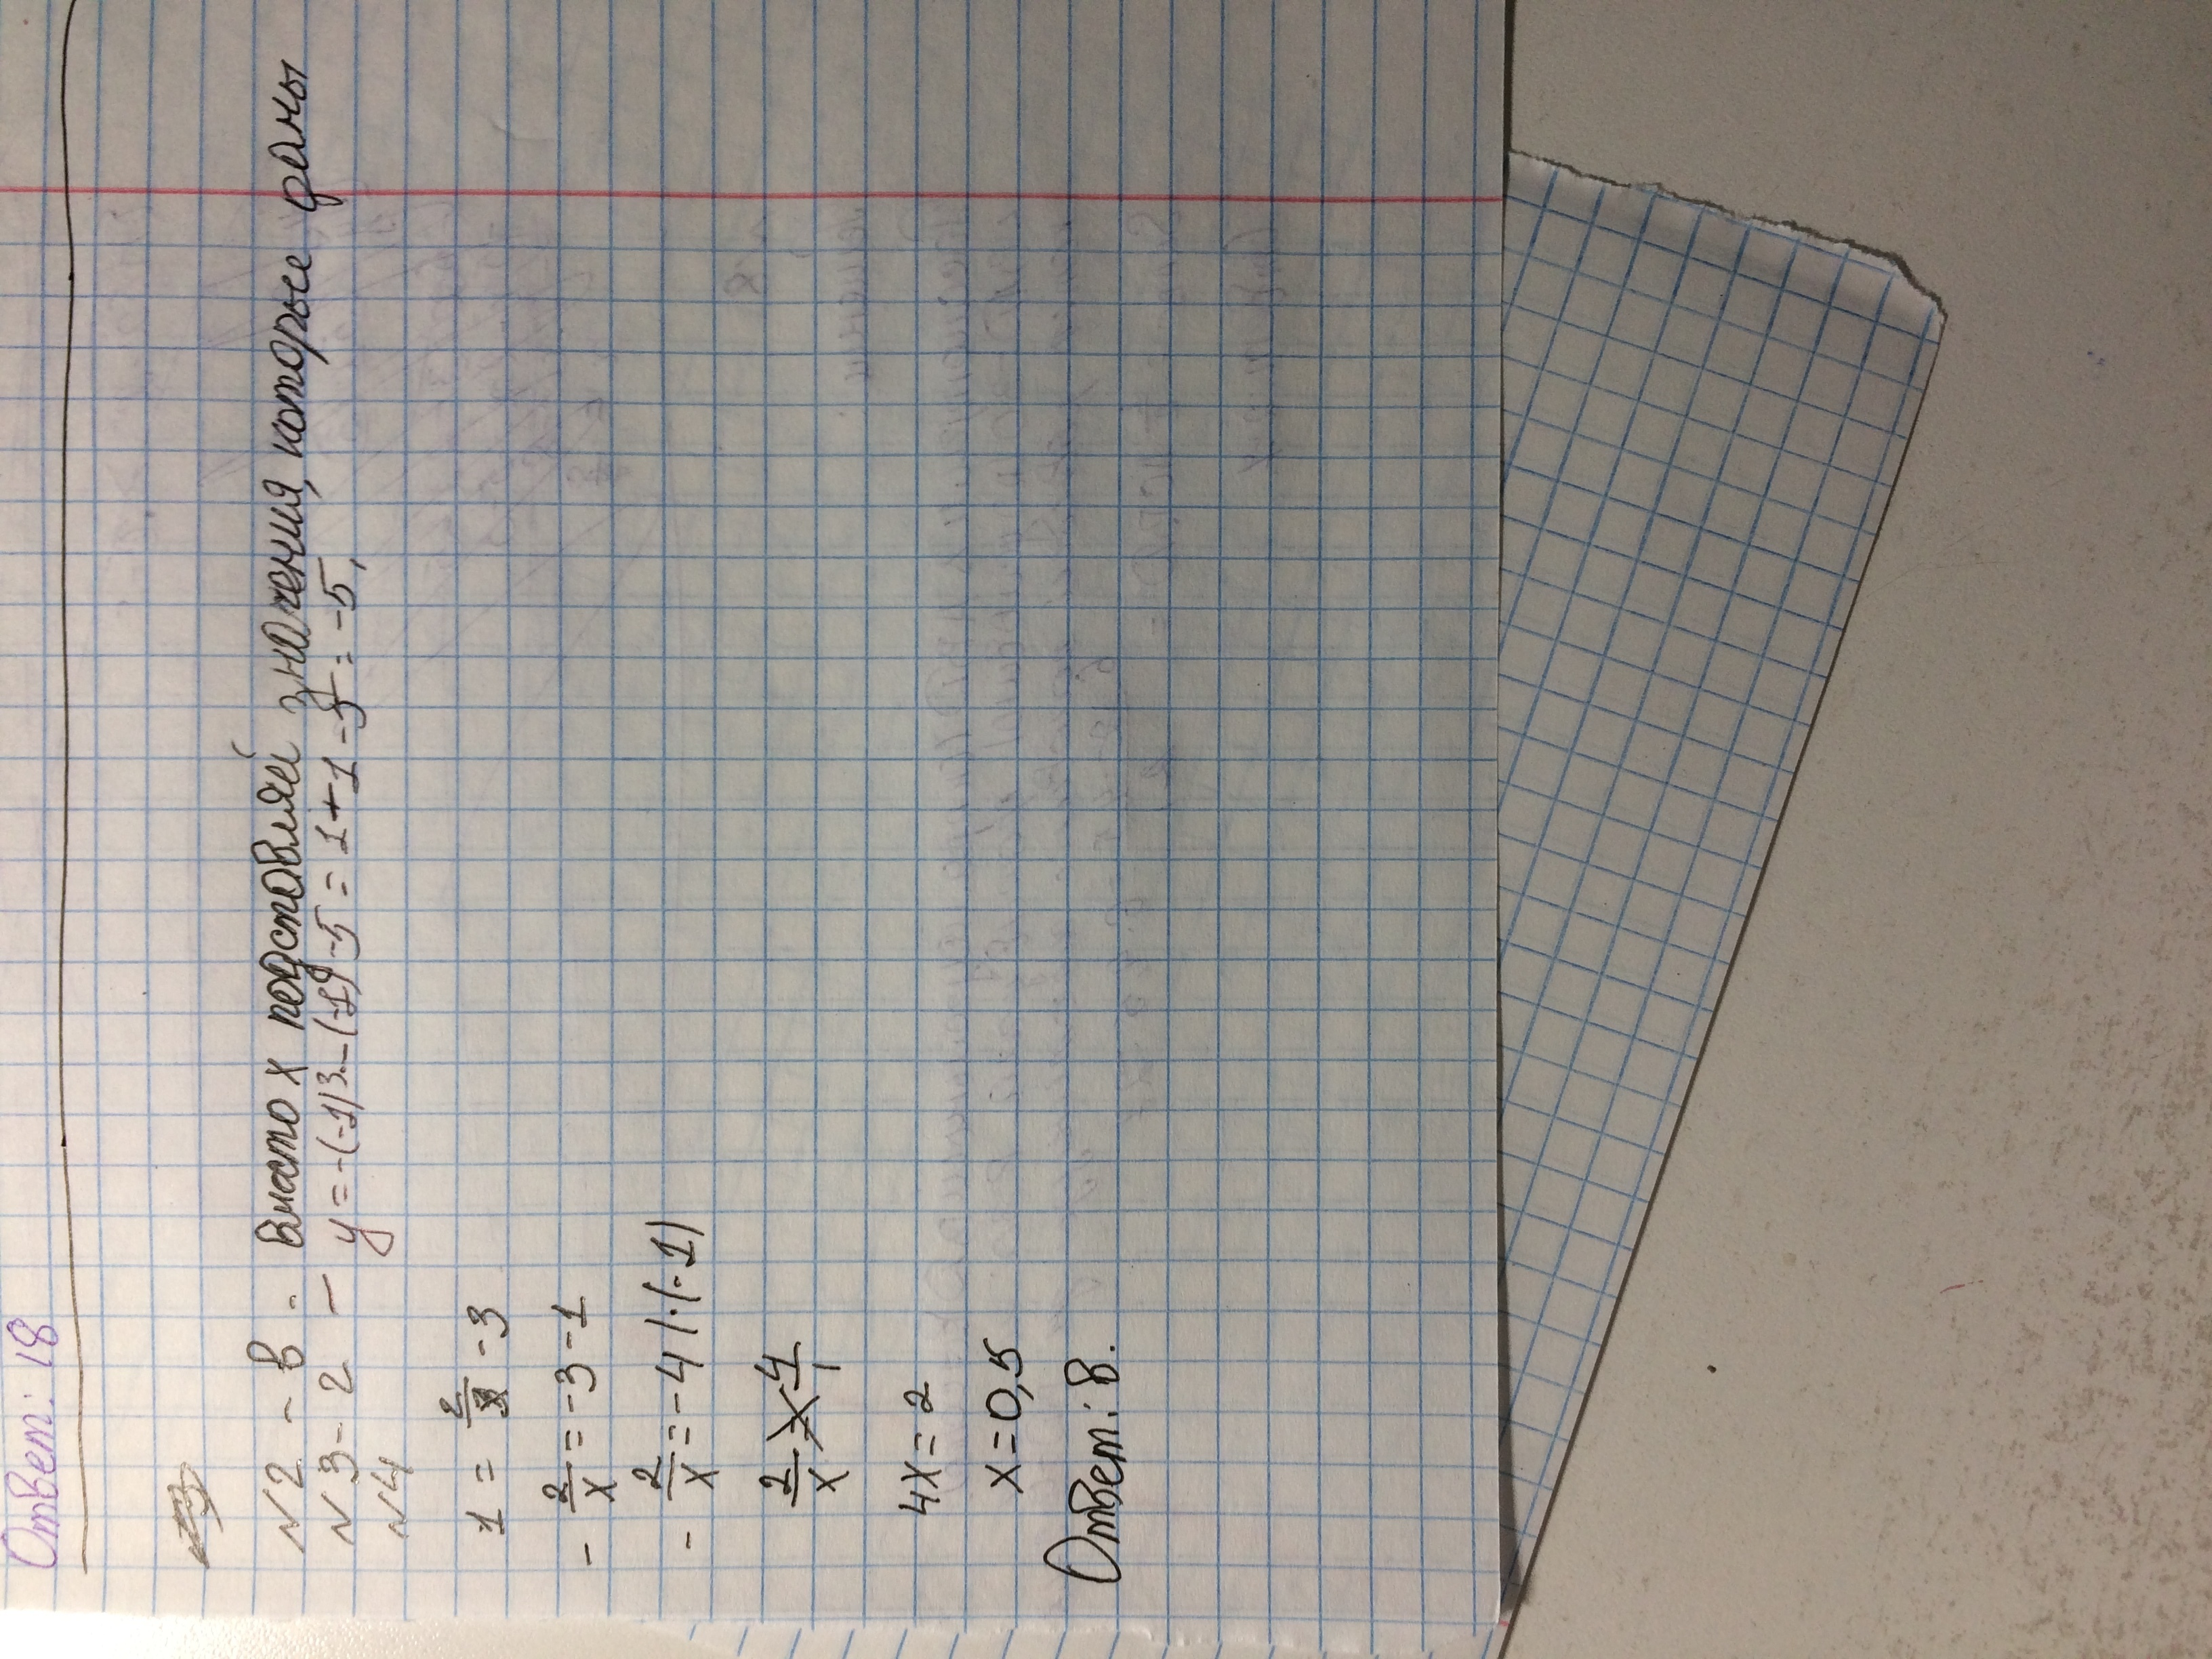 Ответ: 18
N2 - в - Вмсто х подставляй значения, которые даны
N3 - 2 - y = -(-1)³ - (-1) - 5 = 1 + 1 - 5 = -5,
N4
1 = 2/x - 3
- 2/x = -3 - 1
- 2/x = -4 | · (-1)
2/x 4/1
4x = 2
x = 0,5
Ответ: В.